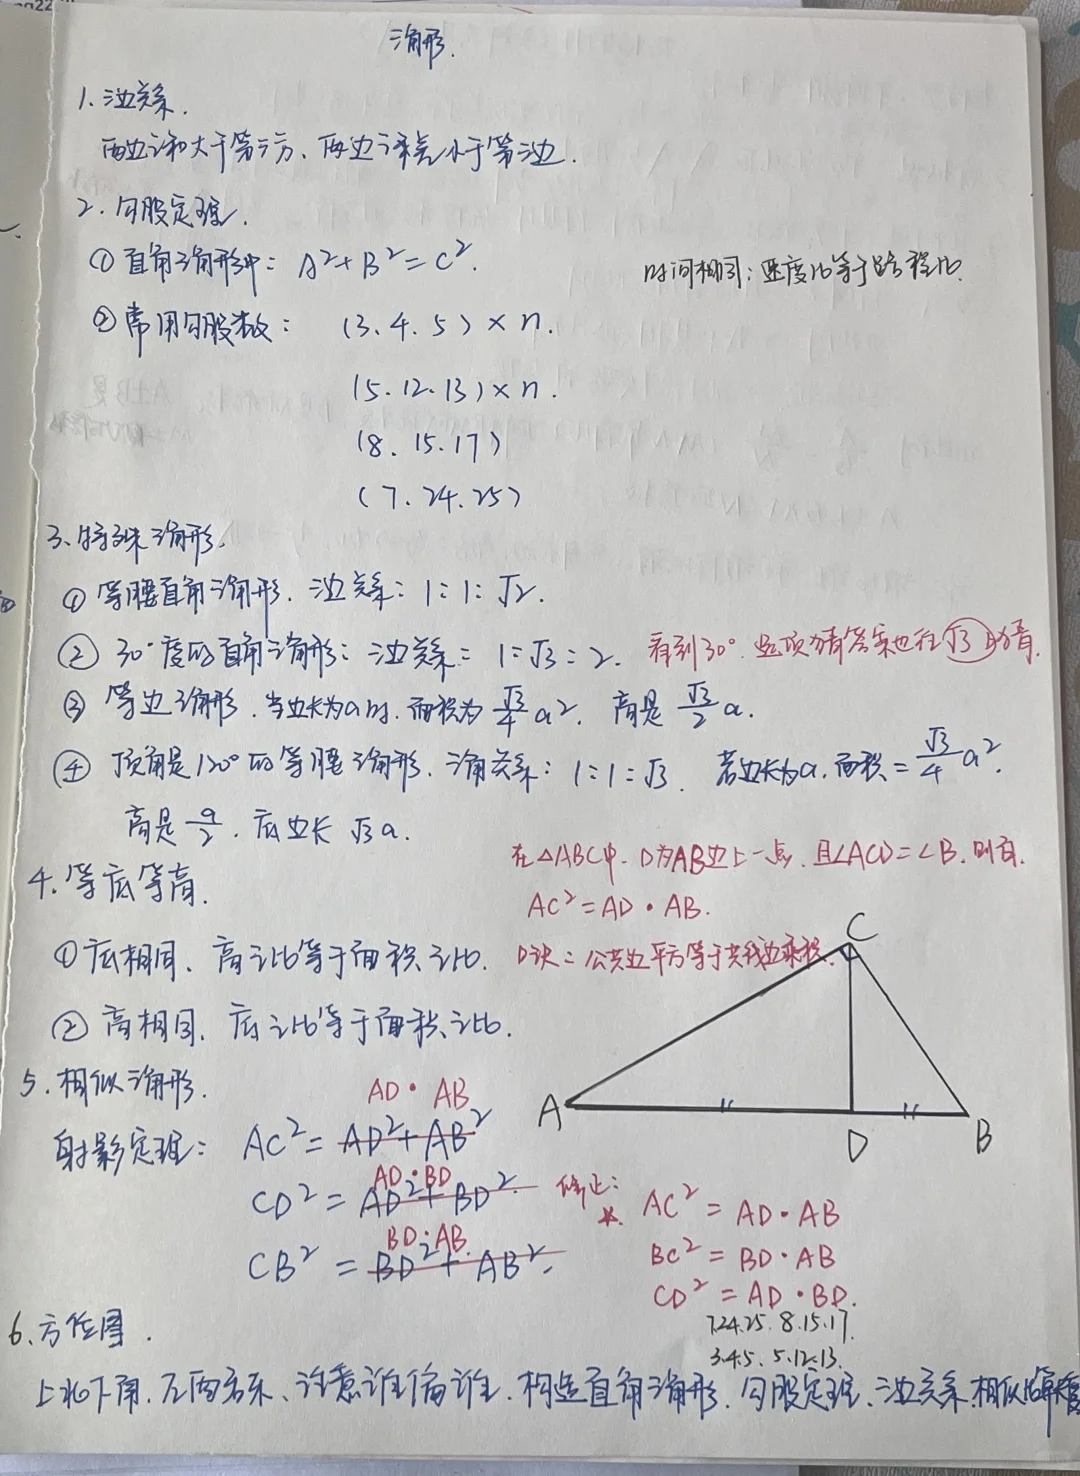 三角形.
1. 三边关系.
两边之和大于第三方、两边之差小于第三边.
2. 勾股定理.
① 直角三角形中: A²+B²=C².
时间相同: 速度比等于路程比.
② 常用勾股数: (3.4.5)×n.
(5.12.13)×n.
(8.15.17)
(7.24.25)
3. 特殊三角形.
① 等腰直角三角形. 三边关系: 1:1:√2.
② 30°度的直角三角形: 三边关系: 1:√3:2. 看到30°. 选项猜答案也往√3的猜.
③ 等边三角形. 当边长为a时. 面积为 √3/4 a². 高是 √3/2 a.
④ 顶角是120°的等腰三角形. 三角关系: 1:1:√3. 若边长为a. 面积= √3/4 a².
高是 a/2. 底边长 √3a.
在△ABC中. D为AB边上一点, 且∠ACD=∠B. 则有.
4. 等底等高.
AC²=AD·AB.
① 底相同、高之比等于面积之比.
口诀: 公共边平方等于共线边乘积.
② 高相同、底之比等于面积之比.
C
A
D
B
5. 相似三角形.
AD·AB
射影定理: AC²=AD²+AB²
AD·BD
CD²=AD²+BD².
BD·AB.
CB²=BD²+AB².
修正:
AC²=AD·AB
BC²=BD·AB
CD²=AD·BD.
7.24.25. 8.15.17.
3.4.5、5.12.13.
6. 方位图.
上北下南. 左西右东、注意谁偏谁. 构造直角三角形. 勾股定理、三边关系. 相似